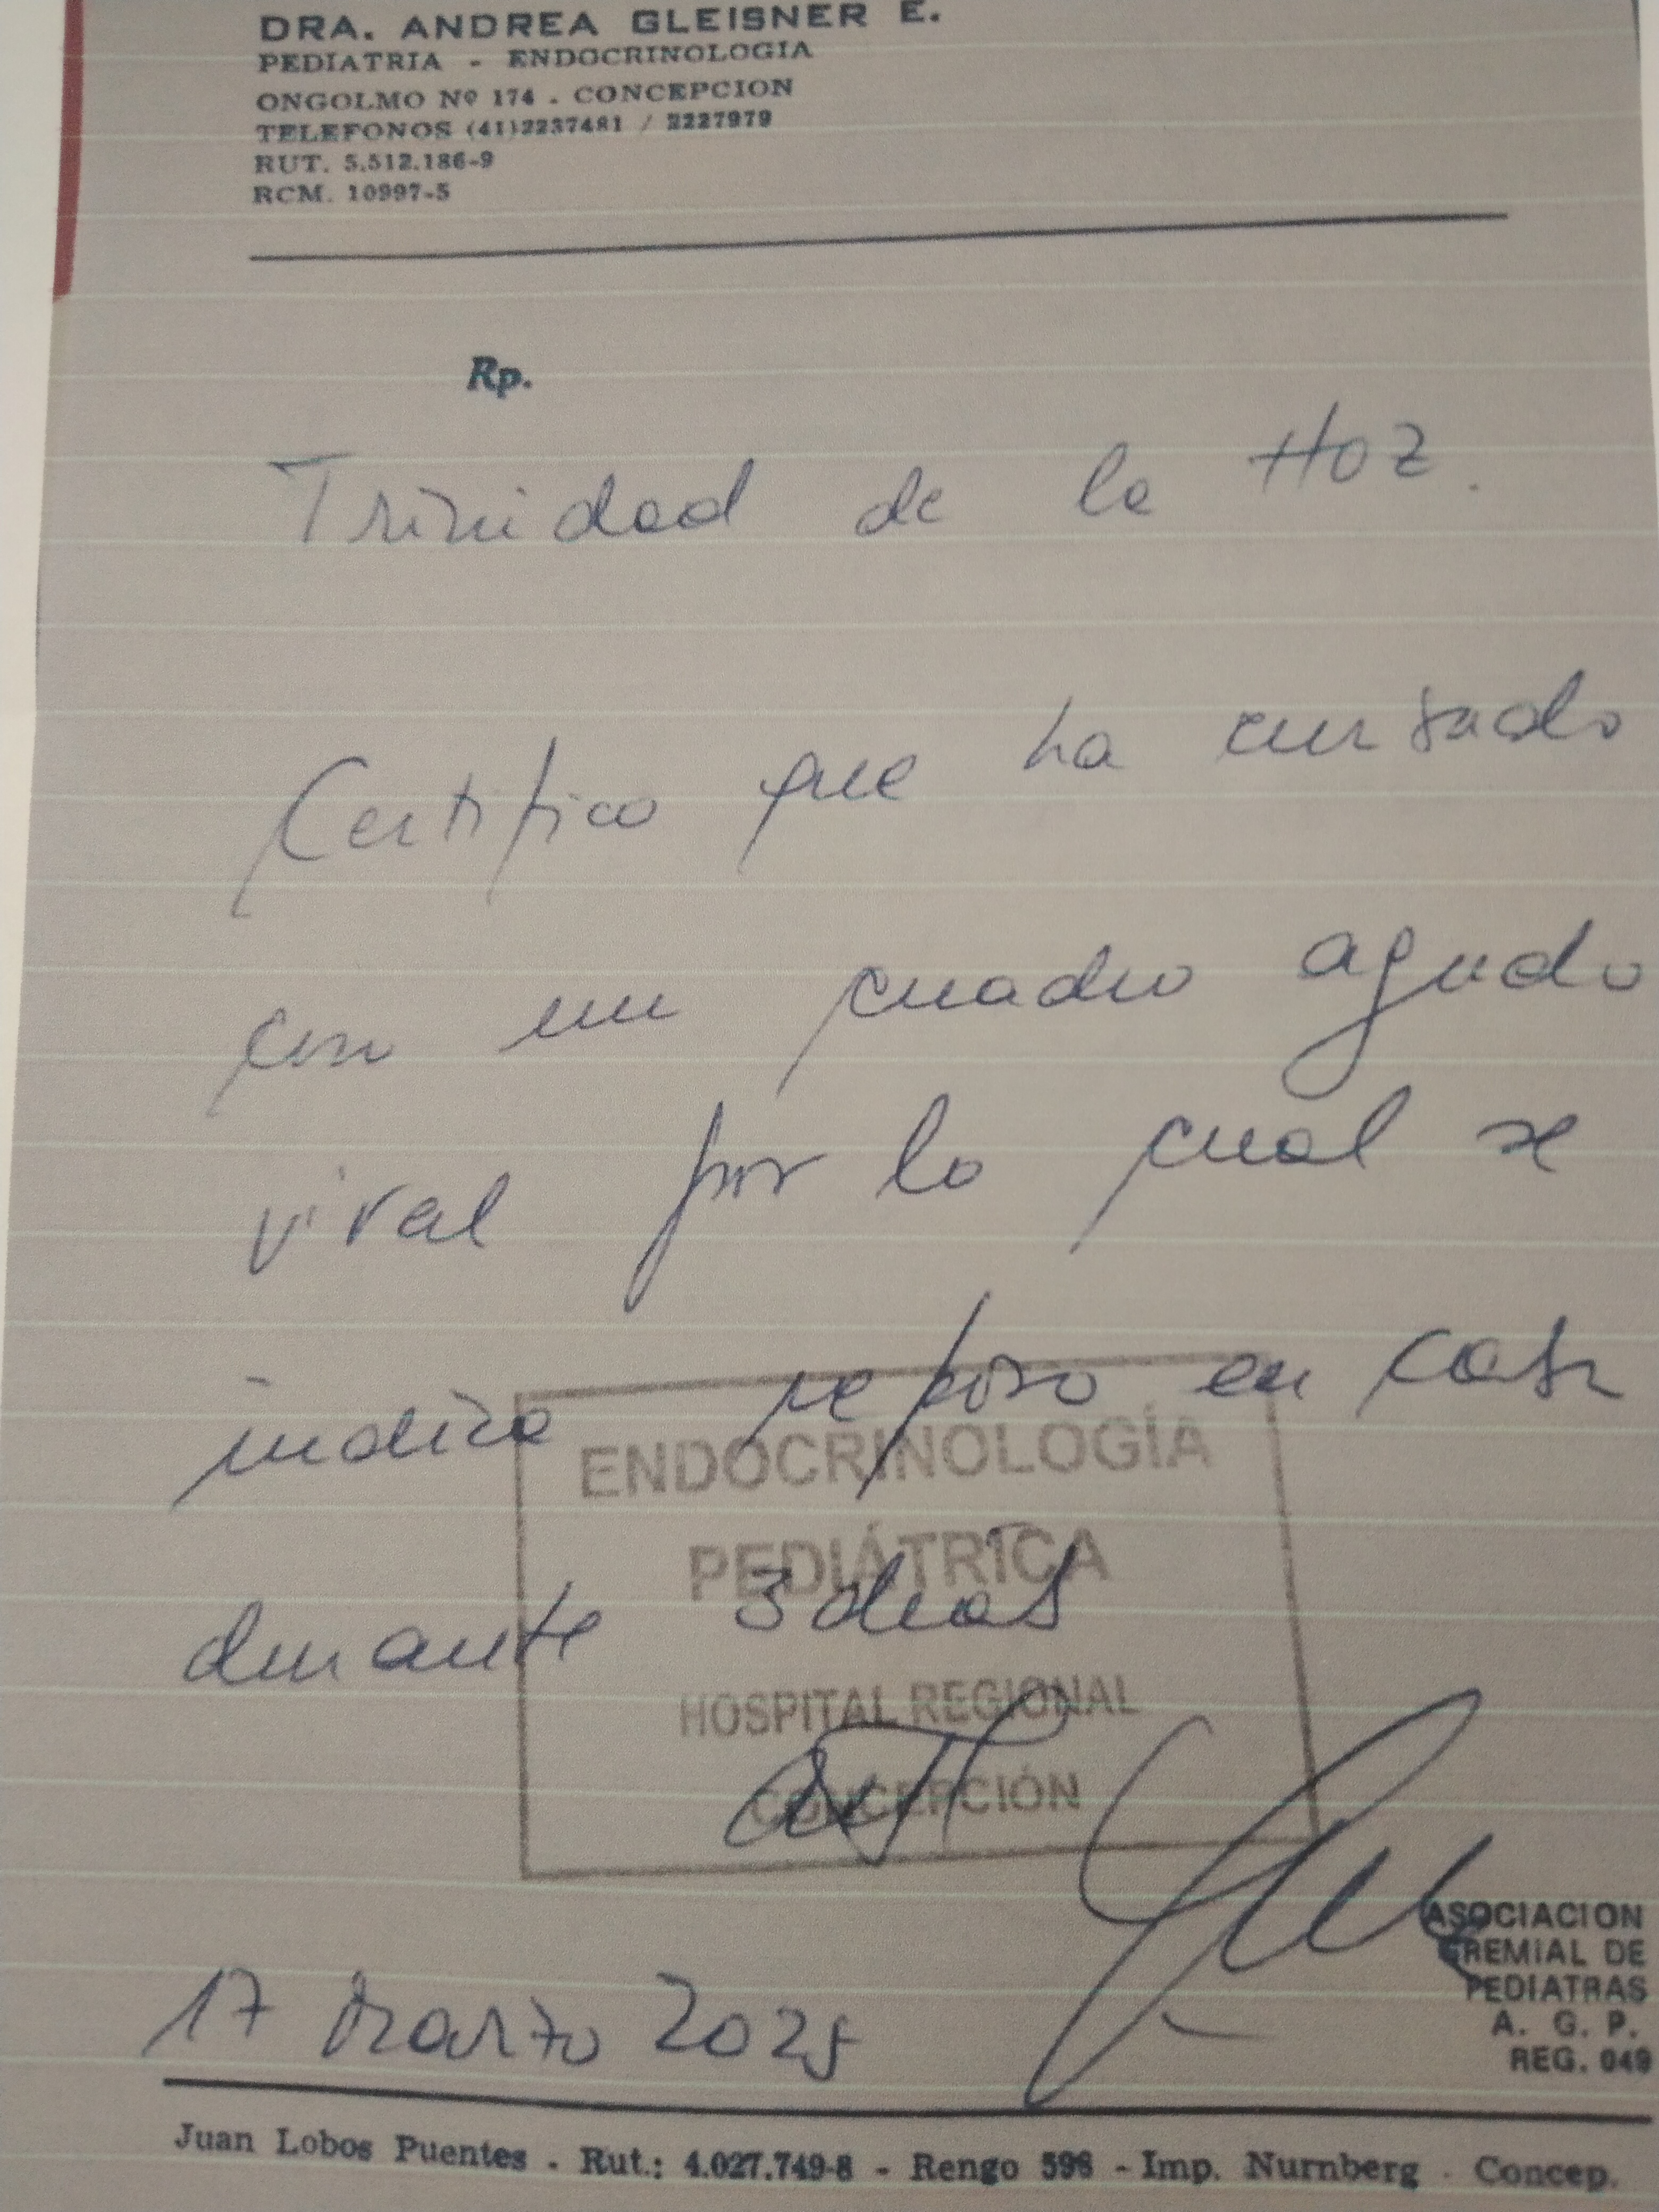 DRA. ANDREA GLEISNER E.
PEDIATRIA - ENDOCRINOLOGIA
ONGOLMO Nº 174 . CONCEPCION
TELEFONOS (41)2237481 / 2227979
RUT. 5.512.186-9
RCM. 10997-5
Rp.
Trinidad de la Hoz.
Certifico que ha cursado
con un cuadro agudo
viral por lo cual se
indica reposo en casa
ENDOCRINOLOGÍA
PEDIÁTRICA
durante 3 dias
HOSPITAL REGIONAL
CONCEPCIÓN
ASOCIACION
GREMIAL DE
PEDIATRAS
A. G. P.
REG. 049
17 Marzo 2025
Juan Lobos Puentes . Rut.: 4.027.749-8 - Rengo 598 - Imp. Nurnberg - Concep.